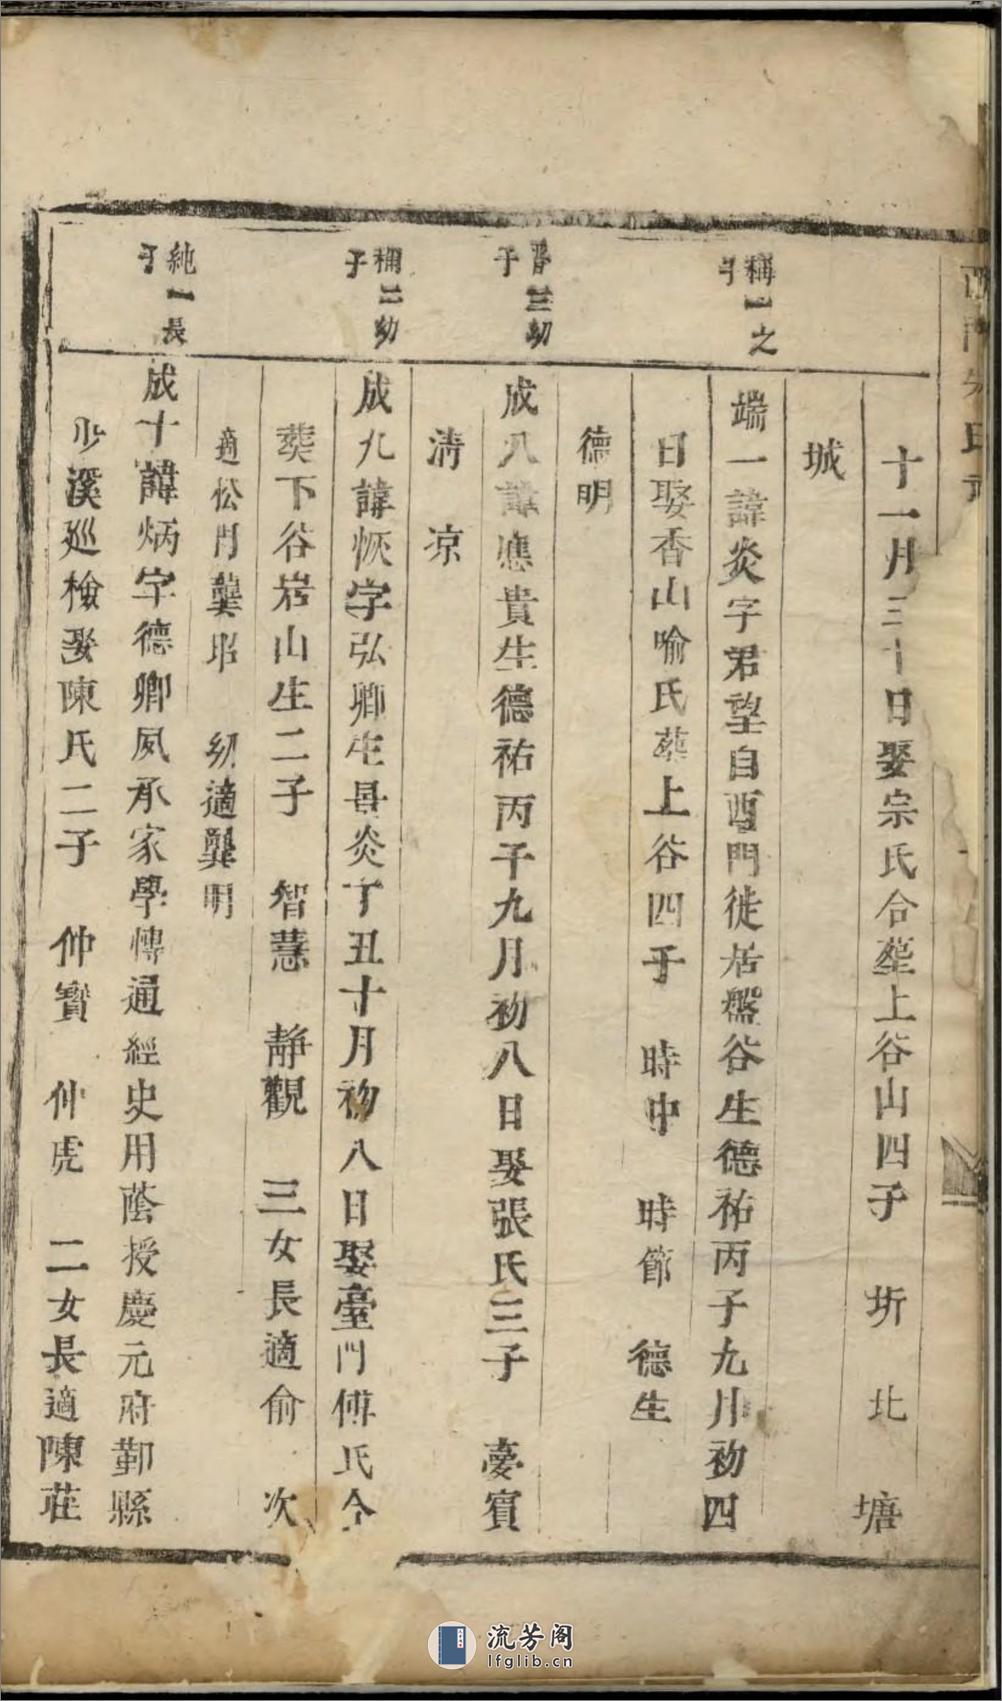 十一月三十日娶宗氏合塟上谷山四子 圻 北 塘
城
稱一之子
端一諱炎字君望自酉門徙居盤谷生德祐丙子九月初四
日娶香山喻氏塟上谷四子 時中 時節 德生
德明
三幼子
成八諱應貴生德祐丙子九月初八日娶張氏三子 夢賓
清 凉
稱二幼子
成九諱恢字弘卿生景炎丁丑十月初八日娶臺門傅氏合
葬下谷岩山生二子 智慧 靜觀 三女長適俞 次
適松門龔昭 幼適龔明
純一長子
成十諱炳字德卿夙承家學慱通經史用蔭授慶元府鄞縣
溪廵檢娶陳氏二子 仲寳 仲虎 二女長適陳莊
流芳阁
lfglib.cn